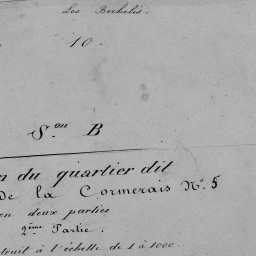 Les Bechelés.
10.
S.on B
n du quartier dit
de la Cormerais N.o 5
en deux parties
2ème Partie.
truit à l'échelle de 1 à 1000.